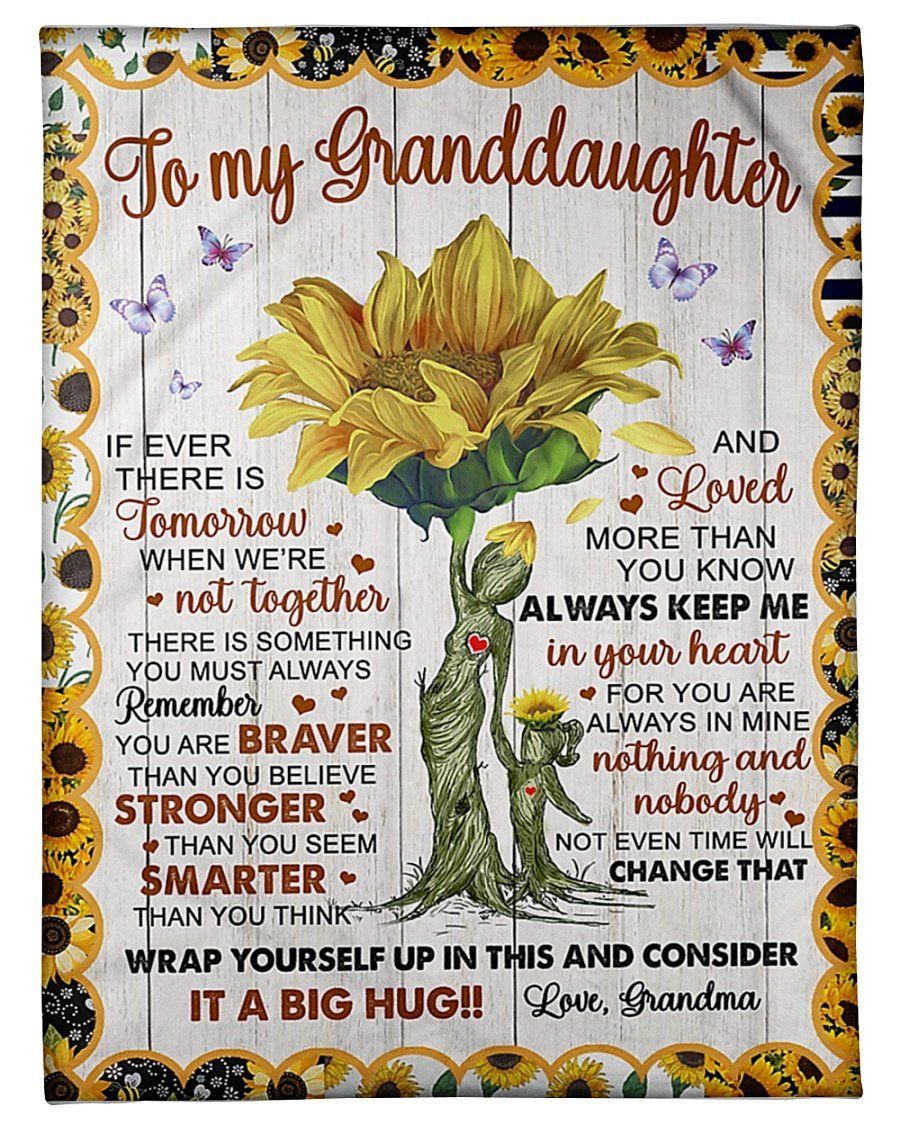 To my Granddaughter
IF EVER
THERE IS
Tomorrow
WHEN WE'RE
not together
THERE IS SOMETHING
YOU MUST ALWAYS
Remember
YOU ARE BRAVER
THAN YOU BELIEVE
STRONGER
THAN YOU SEEM
SMARTER
THAN YOU THINK
AND
Loved
MORE THAN
YOU KNOW
ALWAYS KEEP ME
in your heart
FOR YOU ARE
ALWAYS IN MINE
nothing and
nobody
NOT EVEN TIME WILL
CHANGE THAT
WRAP YOURSELF UP IN THIS AND CONSIDER
IT A BIG HUG!! Love, Grandma